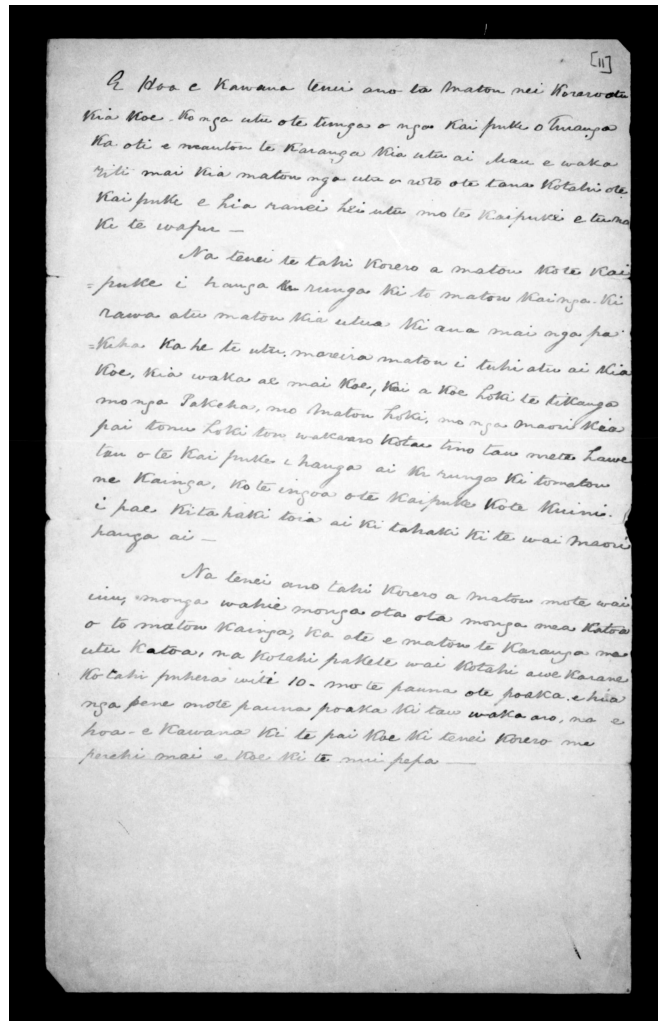 [11]
E Hoa e Kawana tenei ano ta matou nei Korero atu
Kia Koe. Ko nga utu ote tunga o nga Kai puke o Turanga
Ka oti e matou te Karanga Kia utu ai Mau e waka
riti mai Kia matou nga utu o roto ote tau Kotahi ote
Kai puke e hia ranei hei utu mo te Kaipuke e tu na
Ki te wapu —
Na tenei te tahi Korero a matou Kote Kai
=puke i hanga ki runga Ki to matou Kainga. Ki
rawa atu matou Kia utua Ki ana mai nga pa
=Keha Ka he te utu, moreira matou i tuhi atu ai Kia
Koe, Kia waka ae mai Koe, Kei a Koe hoki te tikanga
mo nga Pakeha, mo matou hoki, mo nga maori Kia
pai tonu hoki tou wakaaro Kotau tino tau mete hawe
tau o te Kai puke i hanga ai Ki runga Ki tomatou
ne Kainga, Ko te ingoa ote Kaipuke Kote Kuini.
i pae Kitahaki toia ai Ki tahaki Ki te wai maori
hanga ai —
Na tenei ano tahi Korero a matou mote wai
inu, monga wahie monga ota ota monga mea Katoa
o to matou Kainga, Ka oti e matou te Karanga na
utu Katoa, na Kotahi pakete wai Kotahi awe Karane
Ko tahi puhera witi 10 - mo te pauna ote poaka. e hia
nga pene mote pauna poaka Ki tau waka aro, na e
hoa - e Kawana Ki te pai Koe Ki tenei Korero me
perehi mai e Koe Ki te nui pepa —